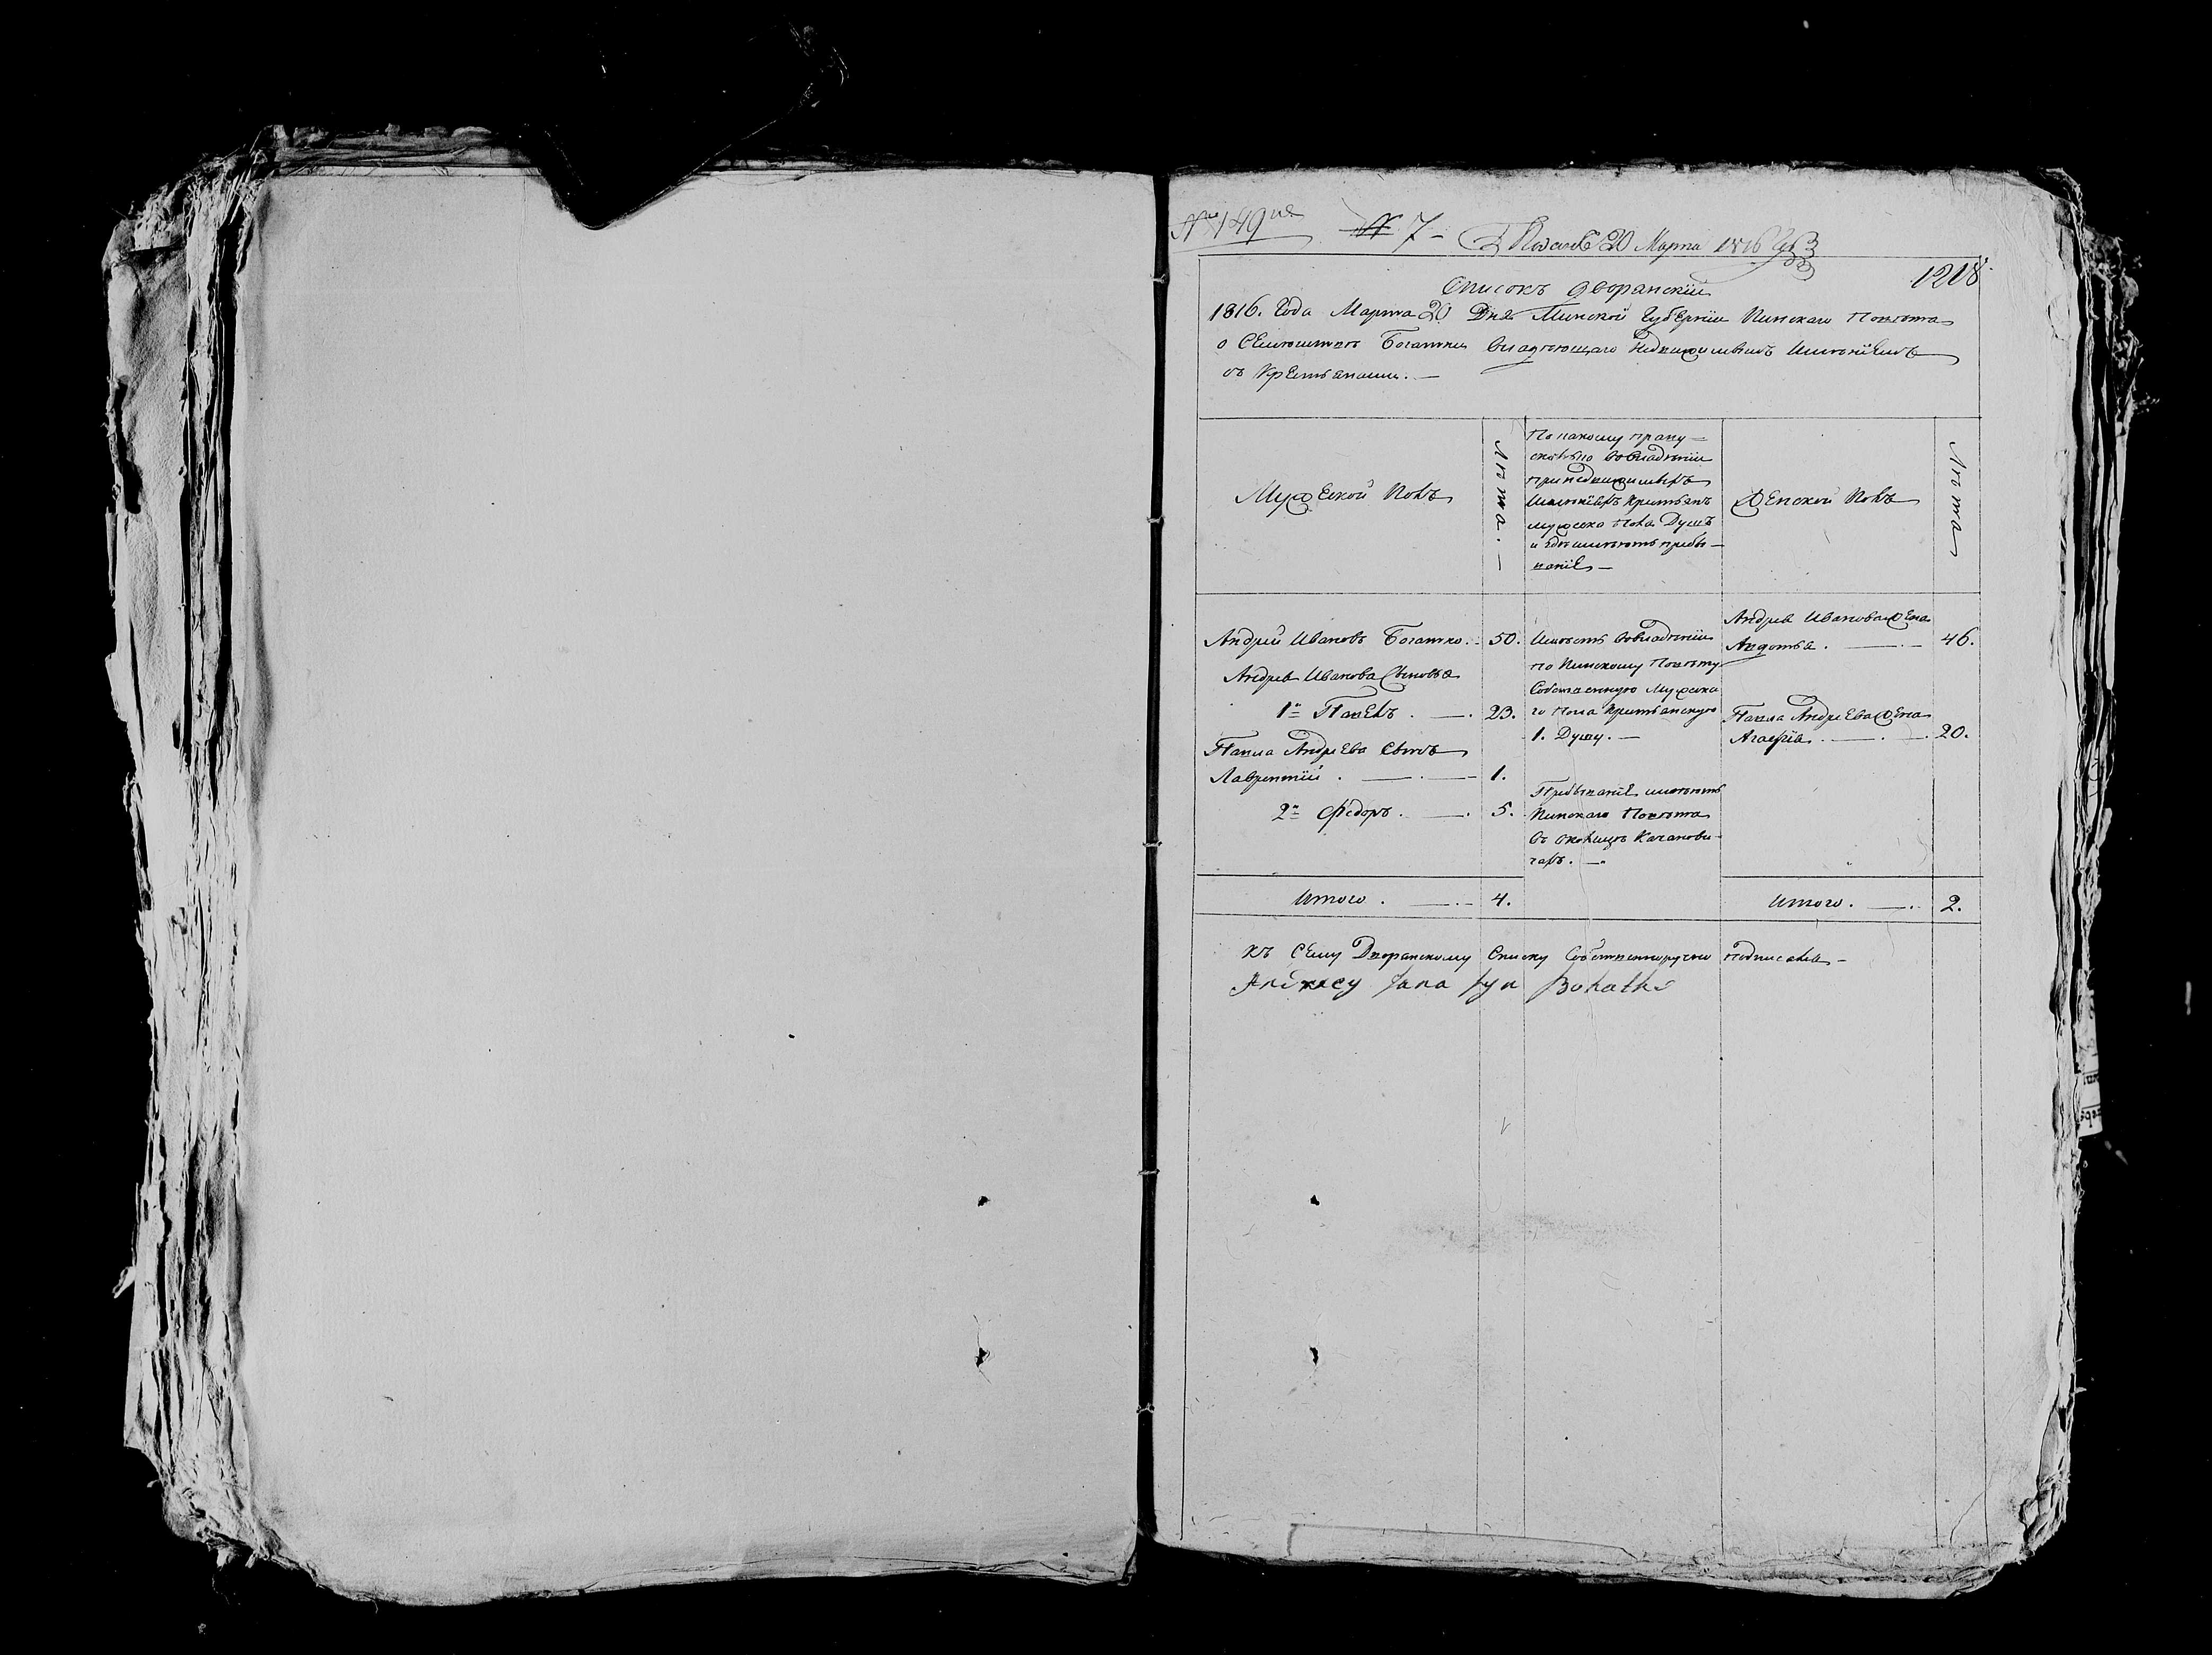 № 149 № 7 - Подано 20 Марта 1816 года
1218
Списокъ дворанскіи
1816. Года Марта 20 Дня Минской Губерніи Пинскаго Повѣта
о Семѣистве Богатки владѣющаго недвижимымъ имѣніемъ
съ Крестьянами. —
Мужеской полъ
Лѣта. —
По какому праву —
сколько во владѣніи
при недвижимыхъ
имѣніяхъ крестьянъ
мужеска пола душъ
и где имѣютъ пребы —
ваніе —
Женской полъ
Лѣта
Андрей Ивановъ Богатко. 50.
Андрея Иванова Сыновья
1й Павелъ . — . 23.
Павла Андреева Сынъ
Лаврентій . — . — 1.
2й Федоръ . — . 5.
Имѣетъ во владѣніи
по Пинскому Повѣту
Собственную мужска
го пола крестьянскую
1. Душу. —
Пребываніе имѣютъ
Пинскаго Повѣта
въ околицѣ Качанови
чахъ. —
Андрея Иванова жена
Авдотья . — . — 46.
Павла Андреева жена
Агафія . — . — . 20.
Итого . — . — 4.
Итого . — . 2.
къ Сему Дворанскому Списку Собственноручно подписалса —
Andrzey Jana syn Bohatko